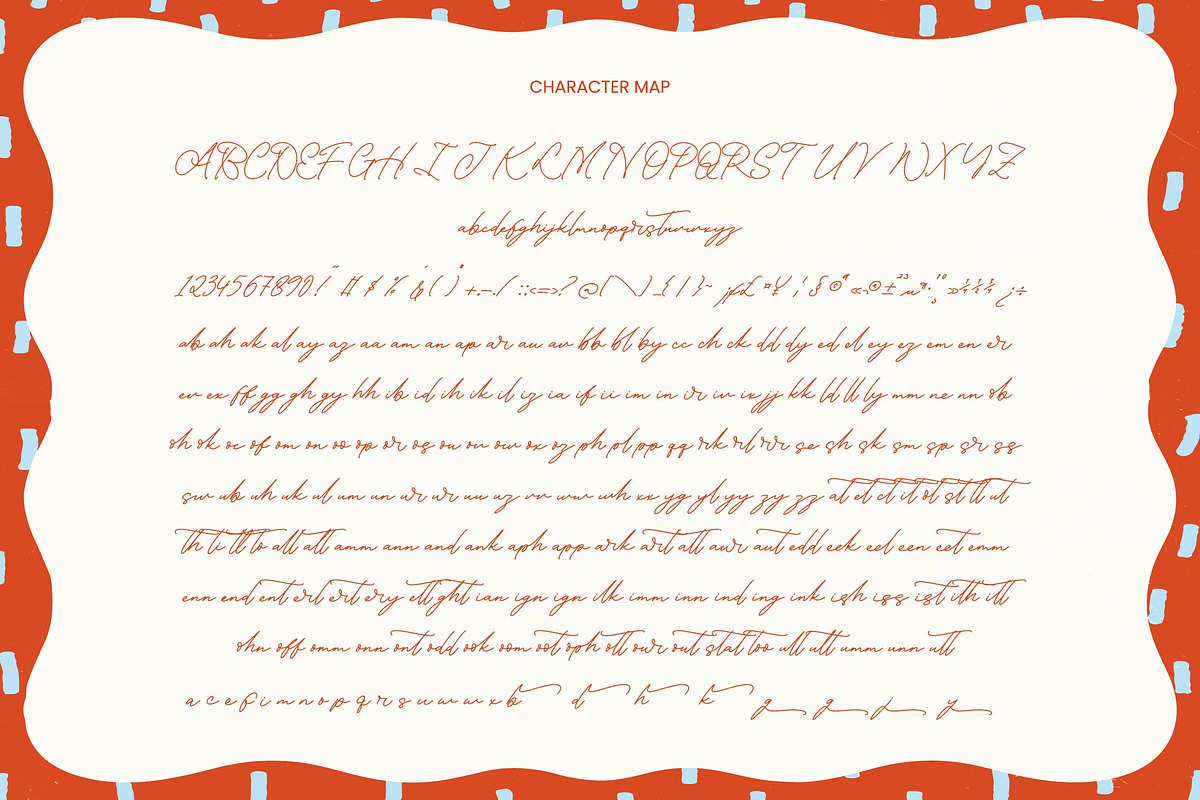 CHARACTER MAP
ABCDEFGH I J K L M N O P Q R S T U V W X Y Z
abcdefghijklmnopqrstuvwxyz
1234567890! " # $ % & ' ( ) * + , - . / : ; < = > ? @ [ \ ] _ { | } ~
ab ah ak al ay az aa am an ap ar au av bb bl by cc ch ck dd dy ed el ey ez em en er
ev ex ff gg gh gy hh ib id ih ik il iz ia if ii im in ir iv ix jj kk ld ll ly mm ne nn ob
oh ok oc of om on oo op or os ou ov ow ox oz ph pl pp qq rk rl rr se sh sk sm sp sr ss
sw ub uh uk ul um un ur uu uz vv ww wh xx yg yl yy zy zz at et ct it ot st tt ut
th ti tt to all att amm ann and ank aph app ark art att awr aut edd eek eel een eet emm
enn end ent erl ert ery ett ght ian ign ign ilk imm inn ind ing ink ish iss ist ith itt
ohn off omm onn ont odd ook oom oot oph ott owr out stat too ull utt umm unn utt
a c e f i m n o p q r s u v w x b d h k g g j y